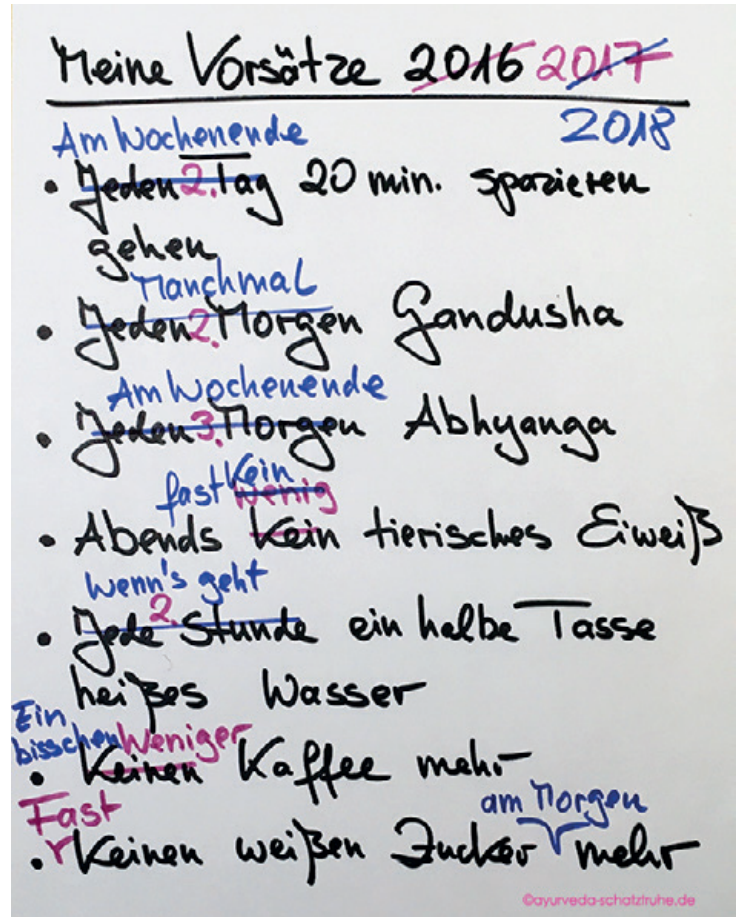 Meine Vorsätze 2016 2017
2018
Am Wochenende
• Jeden 2. Tag 20 min. spazieren
gehen
Manchmal
• Jeden 2. Morgen Gandusha
Am Wochenende
• Jeden 3. Morgen Abhyanga
fast kein wenig
• Abends kein tierisches Eiweiß
wenn's geht
2.
• Jede Stunde ein halbe Tasse
heißes Wasser
Ein
bisschen Weniger
• Keinen Kaffee mehr
Fast am Morgen
• Keinen weißen Zucker mehr
©ayurveda-schatztruhe.de